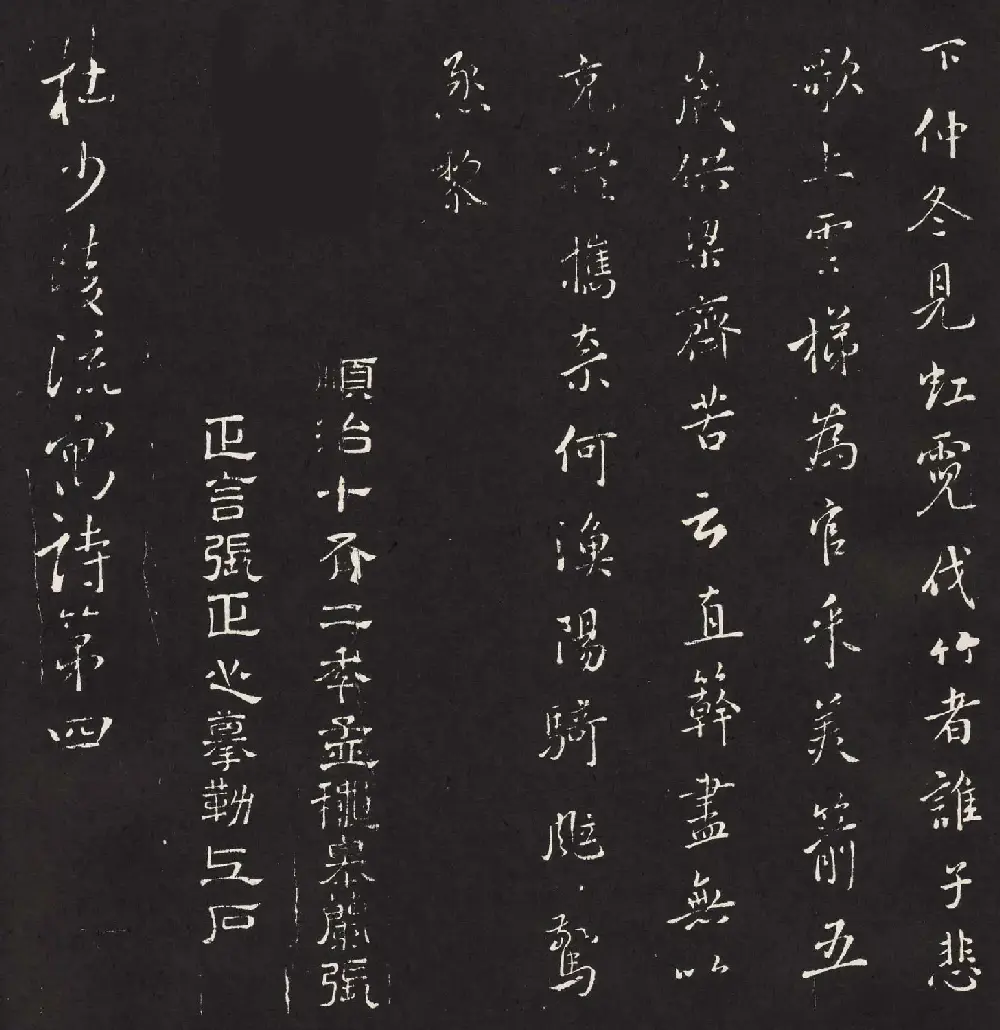 下仲冬見虹霓伐竹者誰子悲
歌上雲梯為官采美箭五
歲供梁齊苦云直簳盡無以
充提攜奈何漁陽騎颯〻驚
烝黎
順治十有二秊孟穐皋蘭張
正言張正心摹勒上石
杜少陵流寓詩第四